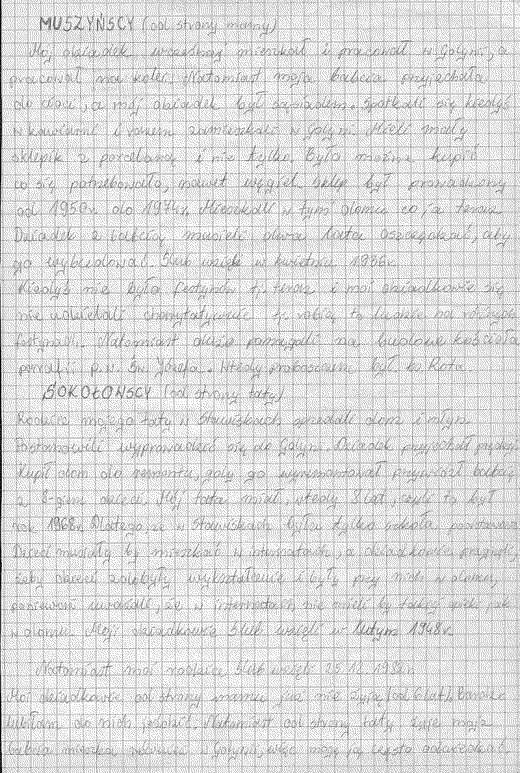 MUSZYŃSCY (od strony mamy)
Mój dziadek wcześniej mieszkał i pracował w Gdyni, a
pracował na kolei. Natomiast moja babcia przyjechała
do cioci, a mój dziadek był sąsiadem. Spotkali się kiedyś
w kawiarni i razem zamieszkali w Gdyni. Mieli mały
sklepik z porcelaną i nie tylko. Było można kupić
co się potrzebowało, nawet węgiel. Sklep był prowadzony
od 1950r. do 1974r. Mieszkali w tym domu co ja teraz.
Dziadek z babcią musieli dwa lata oszczędzać, aby
go wybudować. Ślub wzięli w kwietniu 1936r.
Kiedyś nie było festynów tj. teraz i moi dziadkowie się
nie udzielali charytatywnie tj. robią to ludzie na różnych
festynach. Natomiast dużo pomagali na budowę kościoła
parafii p.w. Św. Józefa. Wtedy proboszczem był ks. Rota.
SOKOŁOWSCY (od strony taty)
Rodzice mojego taty w Stawiskach sprzedali dom i młyn.
Postanowili wyprowadzić się do Gdyni. Dziadek przyjechał prędzej.
Kupił dom do remontu, gdy go wyremontował przywiózł babcię
z 8-giem dzieci. Mój tata miał wtedy 8 lat, czyli to był
rok 1968r. Dlatego, że w Stawiskach była tylko szkoła podstawowa.
Dzieci musiały by mieszkać w internatach, a dziadkowie pragnęli,
żeby dzieci zdobyły wykształcenie i były przy nich w domu,
ponieważ uważali, że w internatach nie mieli by takiej opieki jak
w domu. Moji dziadkowie ślub wzięli w lutym 1948r.
Natomiast moi rodzice ślub wzięli 25.12.
Moi dziadkowie od strony mamy już nie żyją (od 6 lat). Bardzo
lubiłam do nich jeździć. Natomiast od strony taty żyje moja
babcia mieszka również w Gdyni, więc mogę ją często odwiedzać.